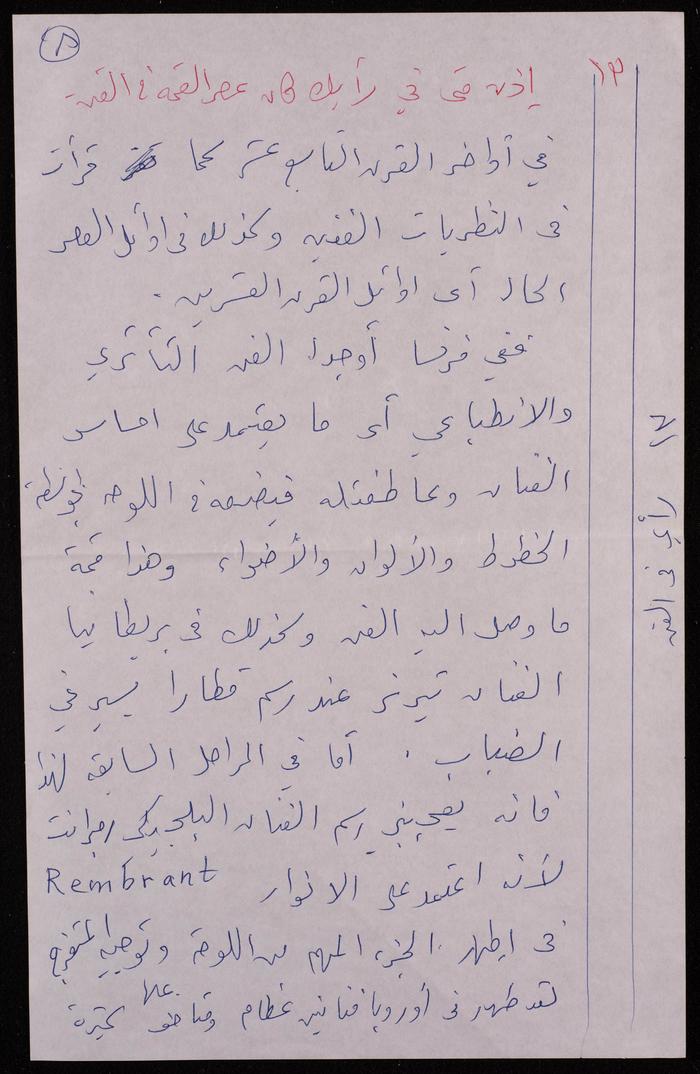 ٨
١٣ إذن متى في رأيك كان عصر القمة في الفن
في أواخر القرن التاسع عشر كما قرأت
فى النظريات الفنيه وكذلك فى اوائل العصر
الحال أى اوائل القرن العشرين .
ففي فرنسا أوجدا الفن التأثري
والانطباعي أى ما يعتمد على احساس
الفنان وعاطفته فيضعه في اللوحه بواسطة
الخطوط والألوان والأضواء وهذا قمة
ما وصل اليه الفن وكذلك فى بريطانيا
الفنان تيرنر عند رسم قطارا يسير في
الضباب . أما في المراحل السابقه لهذا
فانه يعجبني رسم الفنان البلجيكى رمبرانت
لأنه اعتمد على الانوار Rembrant
فى اظهر الجزء المهم من اللوحة وتوجيه المتفرج
عليها
لقد ظهر فى أوروبا فنانين عظام ومتاحف كثيرة
رأي في الفن